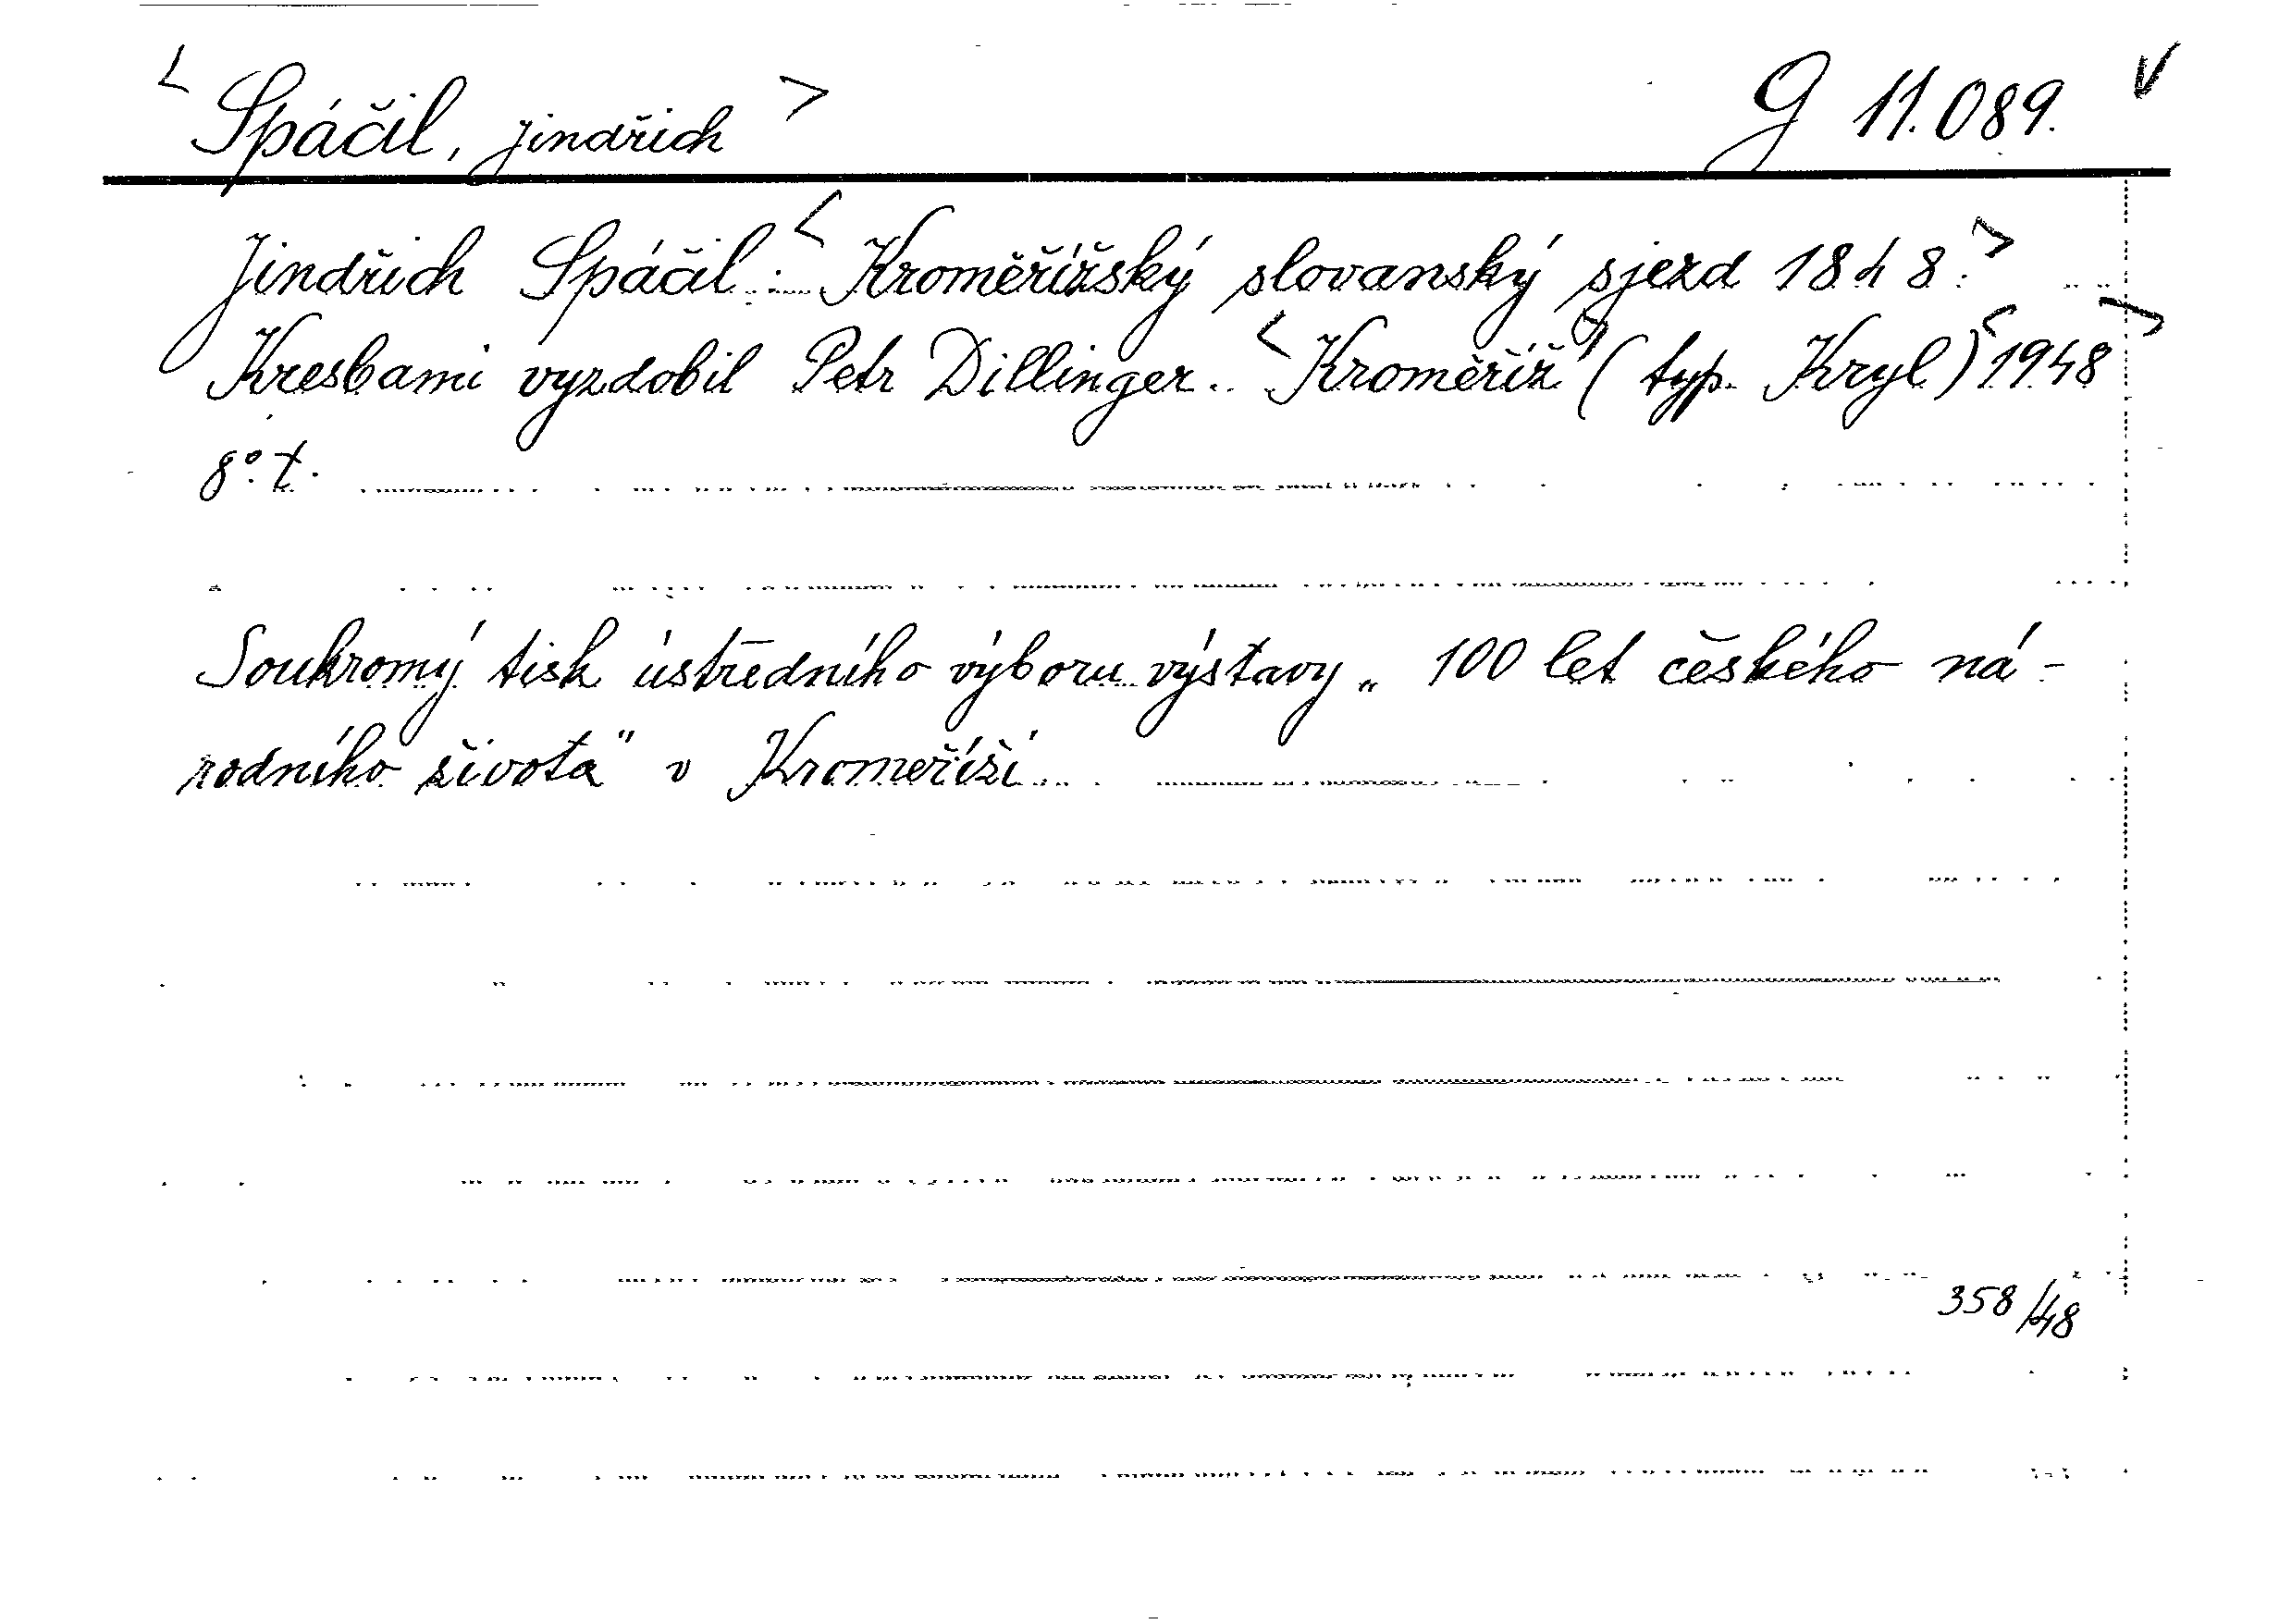 < Spáčil, Jindřich > G 11.089. V
Jindřich Spáčil: < Kroměřížský slovanský sjezd 1848. >
Kresbami vyzdobil Petr Dillinger. < Kroměříž > ( typ. Kryl ) < 1948 >
8°. t.
Soukromý tisk ústředního výboru výstavy „ 100 let českého ná-
rodního života " v Kroměříži
358/48